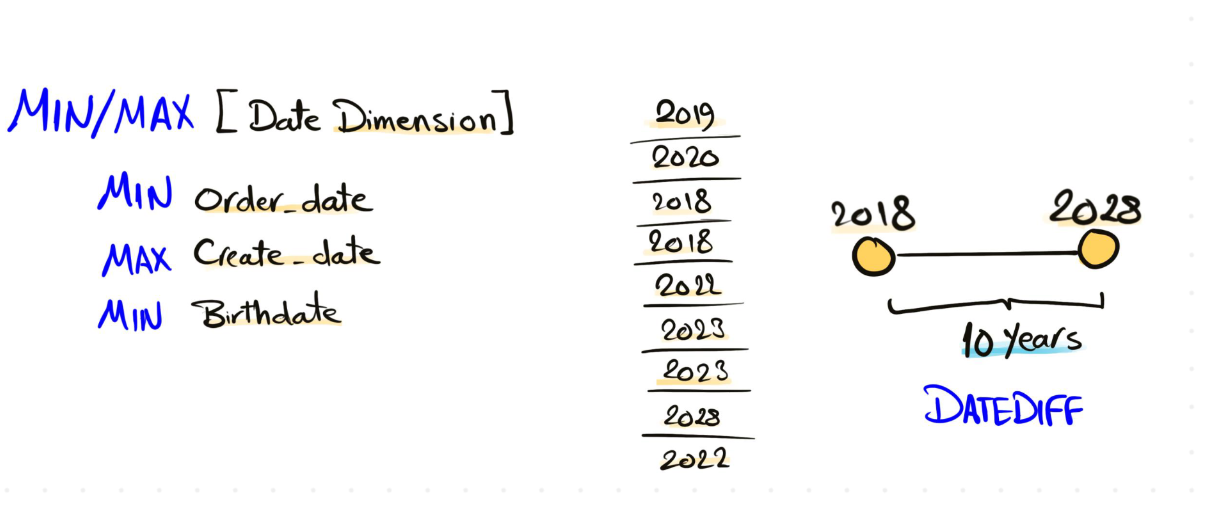 MIN/MAX [Date Dimension]
MIN Order_date
MAX Create_date
MIN Birthdate
2019
2020
2018
2018
2022
2023
2023
2028
2022
2018
2028
10 Years
DATEDIFF